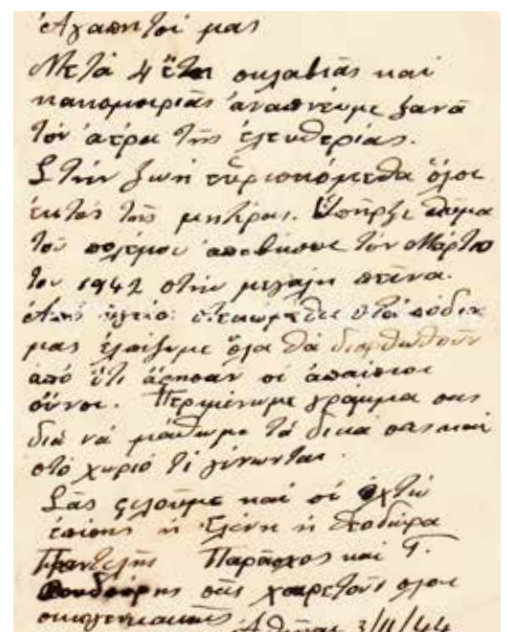 Ἀγαπητοί μας
Μετά 4 ἔτη σκλαβιᾶς καί
κακομοιριᾶς ἀναπνέωμε ξανά
τόν ἀέρα τῆς ἐλευθερίας.
Στήν ζωή εὑρισκόμεθα ὅλοι
ἐκτός τῆς μητέρας. Ὑπῆρξε θῦμα
τοῦ πολέμου ἀποβιώσασα τόν Μάρτιο
του 1942 στήν μεγάλη πείνα.
Ἀπό ὑγεία στά πόδια
μας ἐλπίζωμε ὅλα θά διορθωθοῦν
ἀπό ὅτι ἄφησαν οἱ ἀπαίσιοι
οὗνοι. Περιμένωμε γράμμα σας
διά νά μάθωμε τά δικά σας καί
στό χωριό τί γίνωνται.
Σᾶς φιλοῦμε καί οἱ ὀχτώ
ἐπίσης ἡ Ἑλένη ἡ Θοδώρα
Παντελῆς Παράσχος καί Γ.
σᾶς χαιρετοῦν ὅλοι
οἰκογενειακῶς Ἀθῆναι 3/11/44